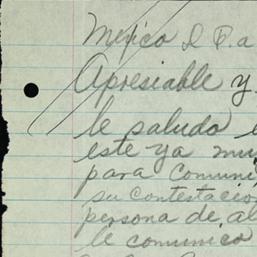 Mexico D F. a
Apresiable y
le saludo
este ya mu
para comuni
su contestacio
persona de al
le comunico